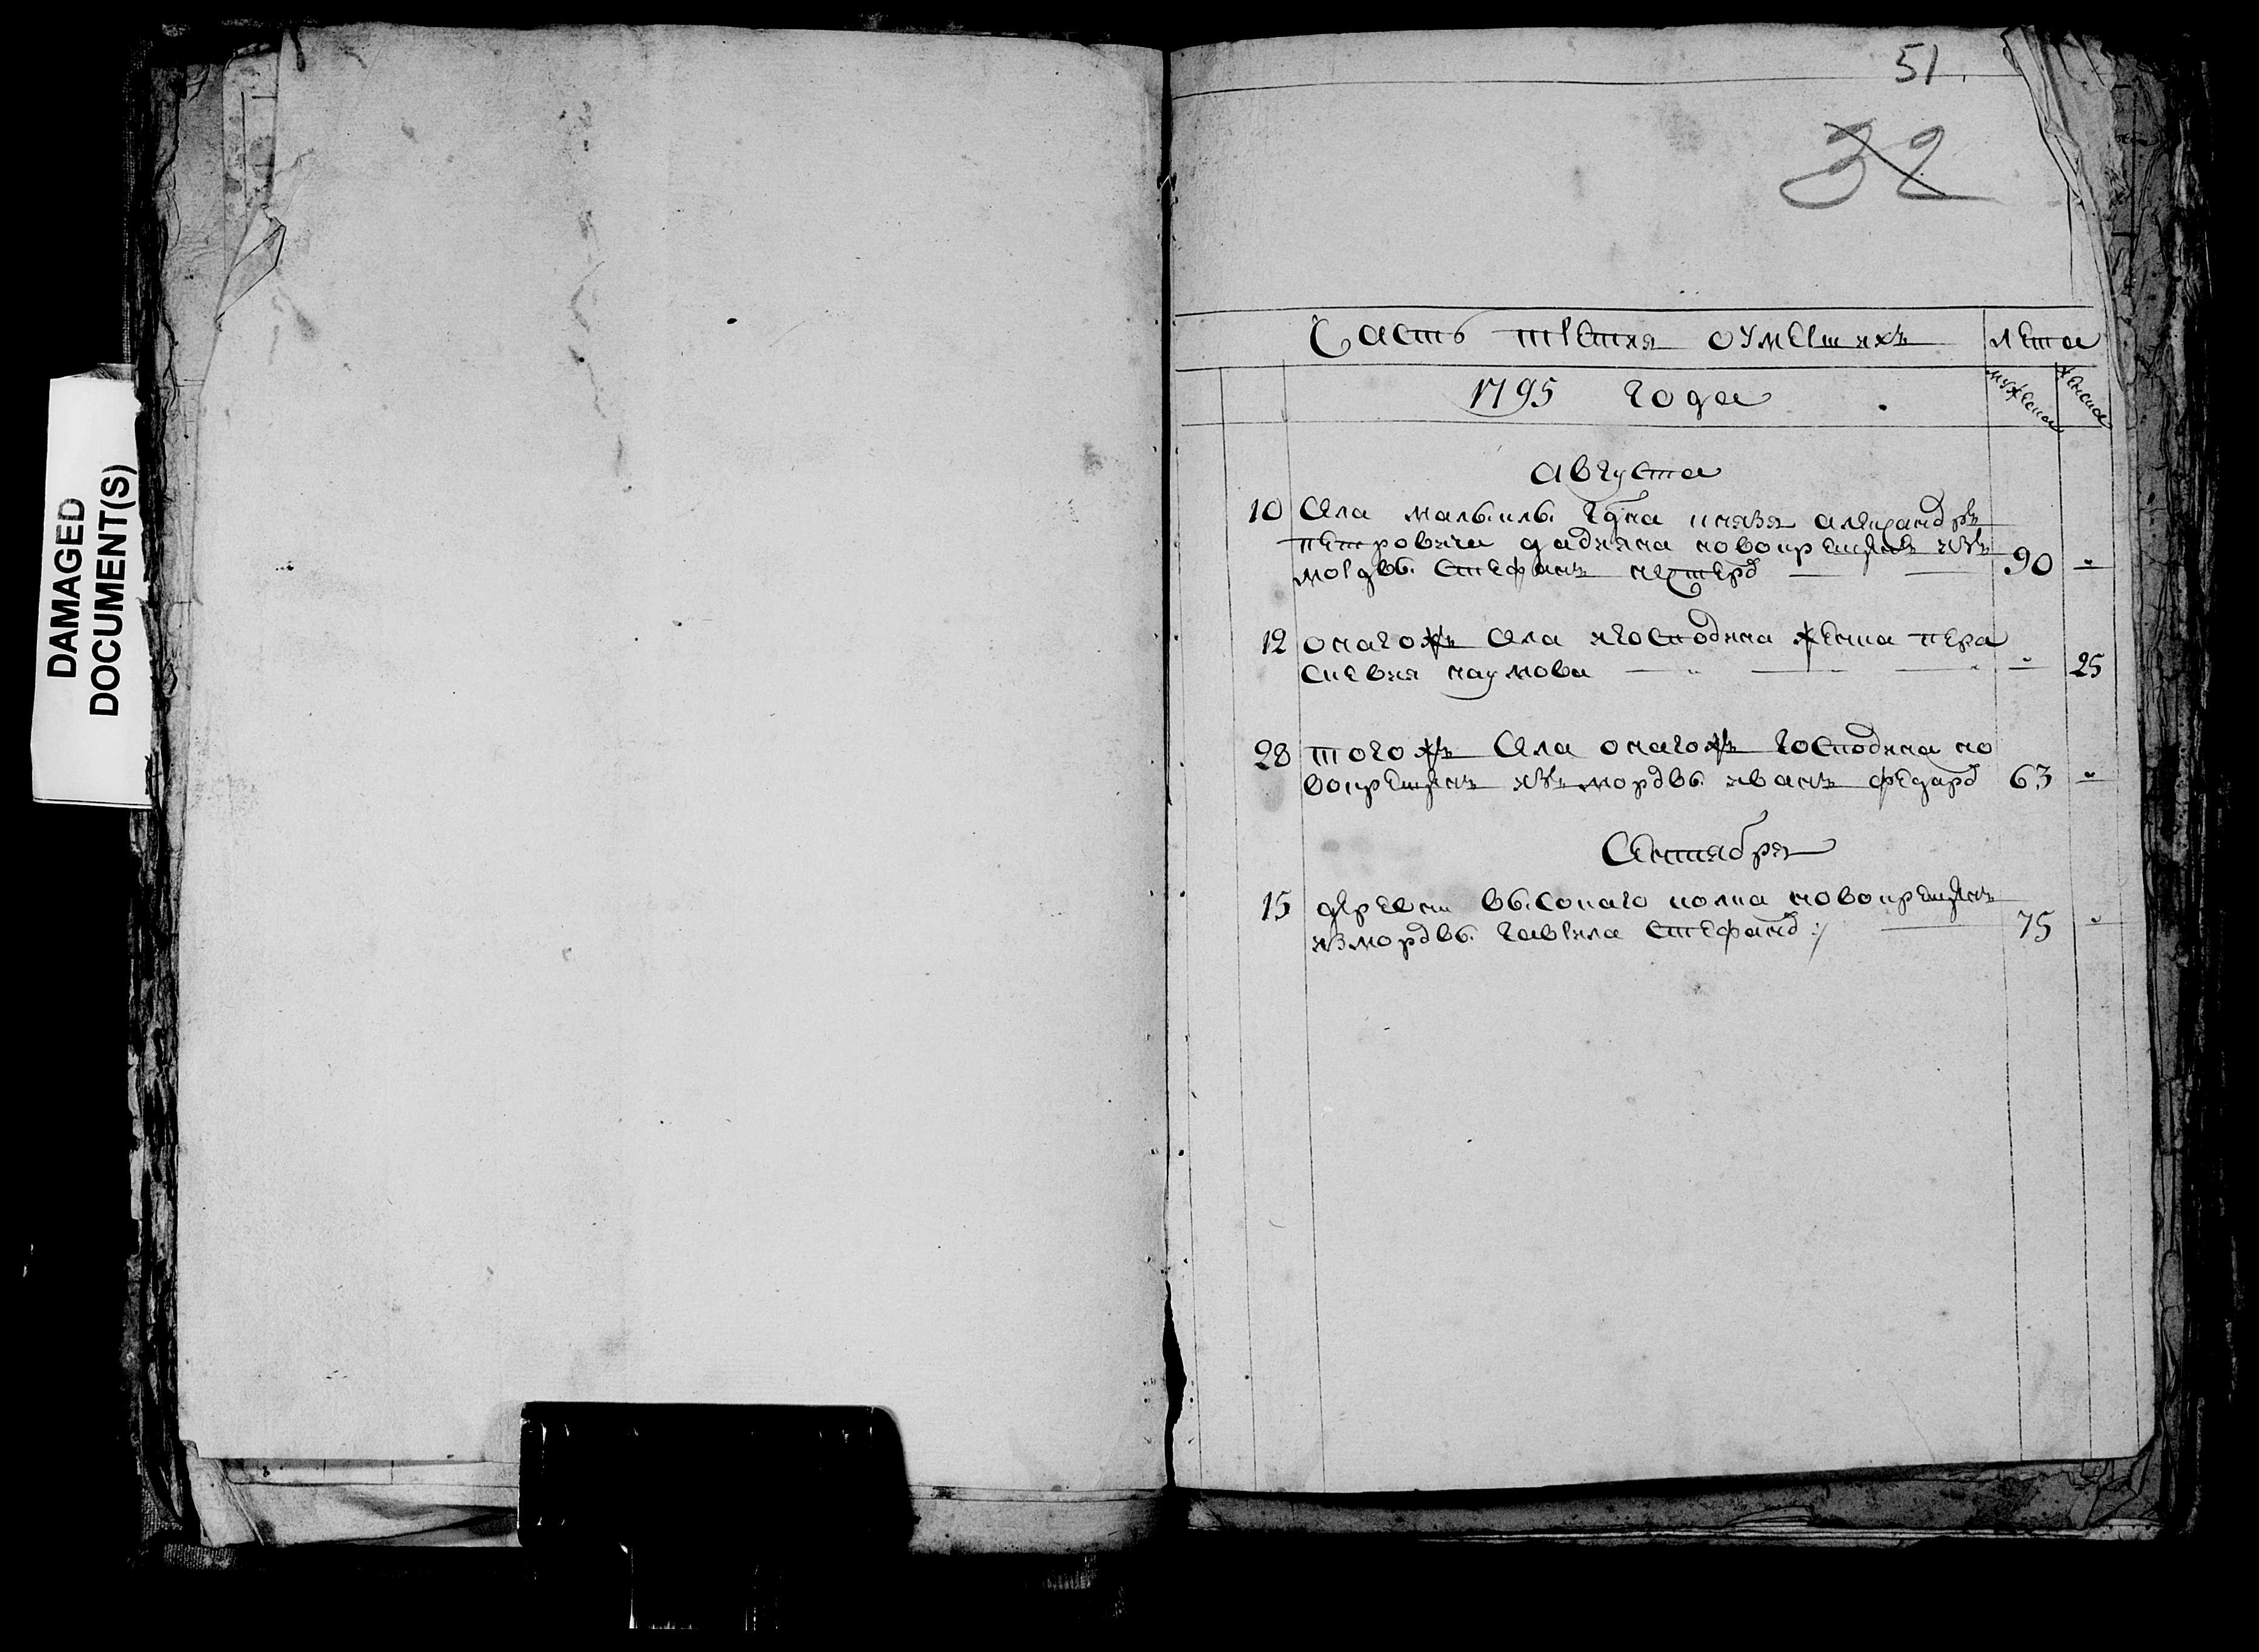 DAMAGED
DOCUMENT(S)
51
32
Часть третия оумершихъ
лета
1795 года
мужеска
женска
августа
10 Села малыилы гдна князя александръ
петровича дадияна новокрещенъ изъ
мордвы стефанъ нестеровъ 90 "
12 онагожъ села и господина женка пера
скевия наумова " 25
28 тогожъ села онагожъ господина но
вокрещенъ изъ мордвы иванъ федаровъ 63 "
Сентября
15 деревни высокаго колка новокрещенъ
изъ мордвы гаврила стефановъ :/ 75 "